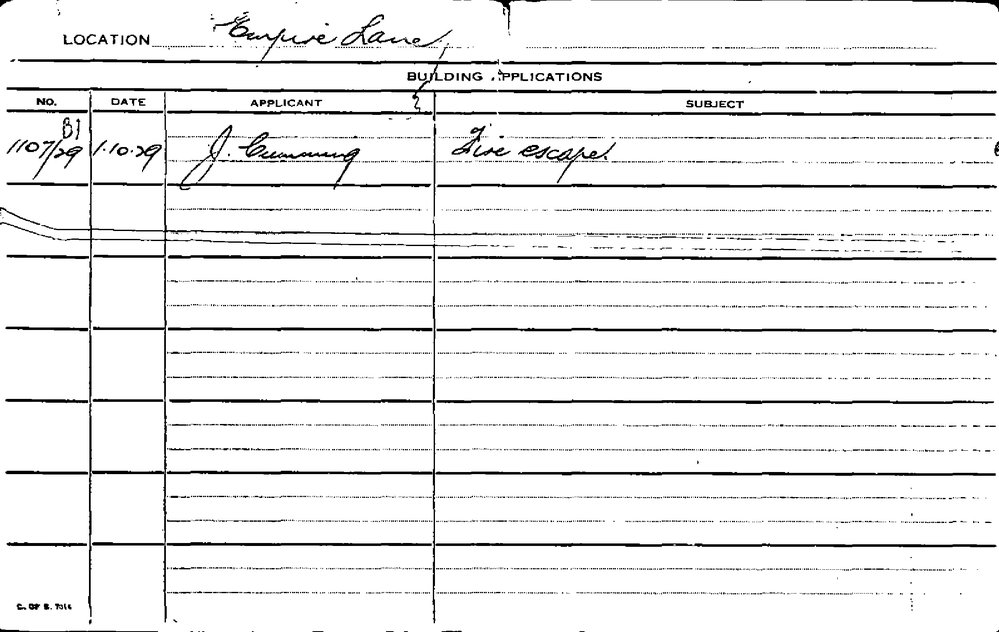 LOCATION Empire Lane
BUILDING APPLICATIONS
NO. DATE APPLICANT SUBJECT
B1
1107/29 1.10.29 J. Cumming Fire escape.
C. OF S. 7016